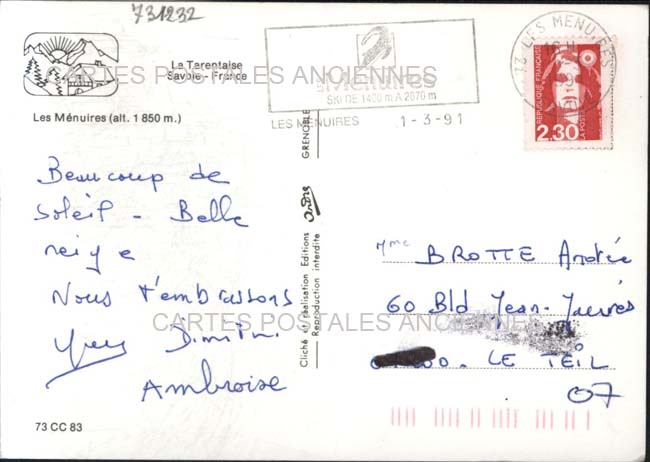 731232
La Tarentaise
Savoie - France
Les Ménuires (alt. 1 850 m.)
CARTES POSTALES ANCIENNES
Ménuires
SKI DE 1400 m A 2870 m
LES MENUIRES 1-3-91
73 LES MENUIRES
REPUBLIQUE FRANÇAISE
LA POSTE
2.30
Beaucoup de
Soleil - Belle
neige
Nous t'embrassons
Yves Dimitri
Ambroise
73 CC 83
GRENOBLE
André
Cliché et réalisation Editions
Reproduction interdite
Mme BROTTE Andrée
60 Bld Jean-Jaurès
CARTES POSTALES ANCIENNES
LE TEIL
07